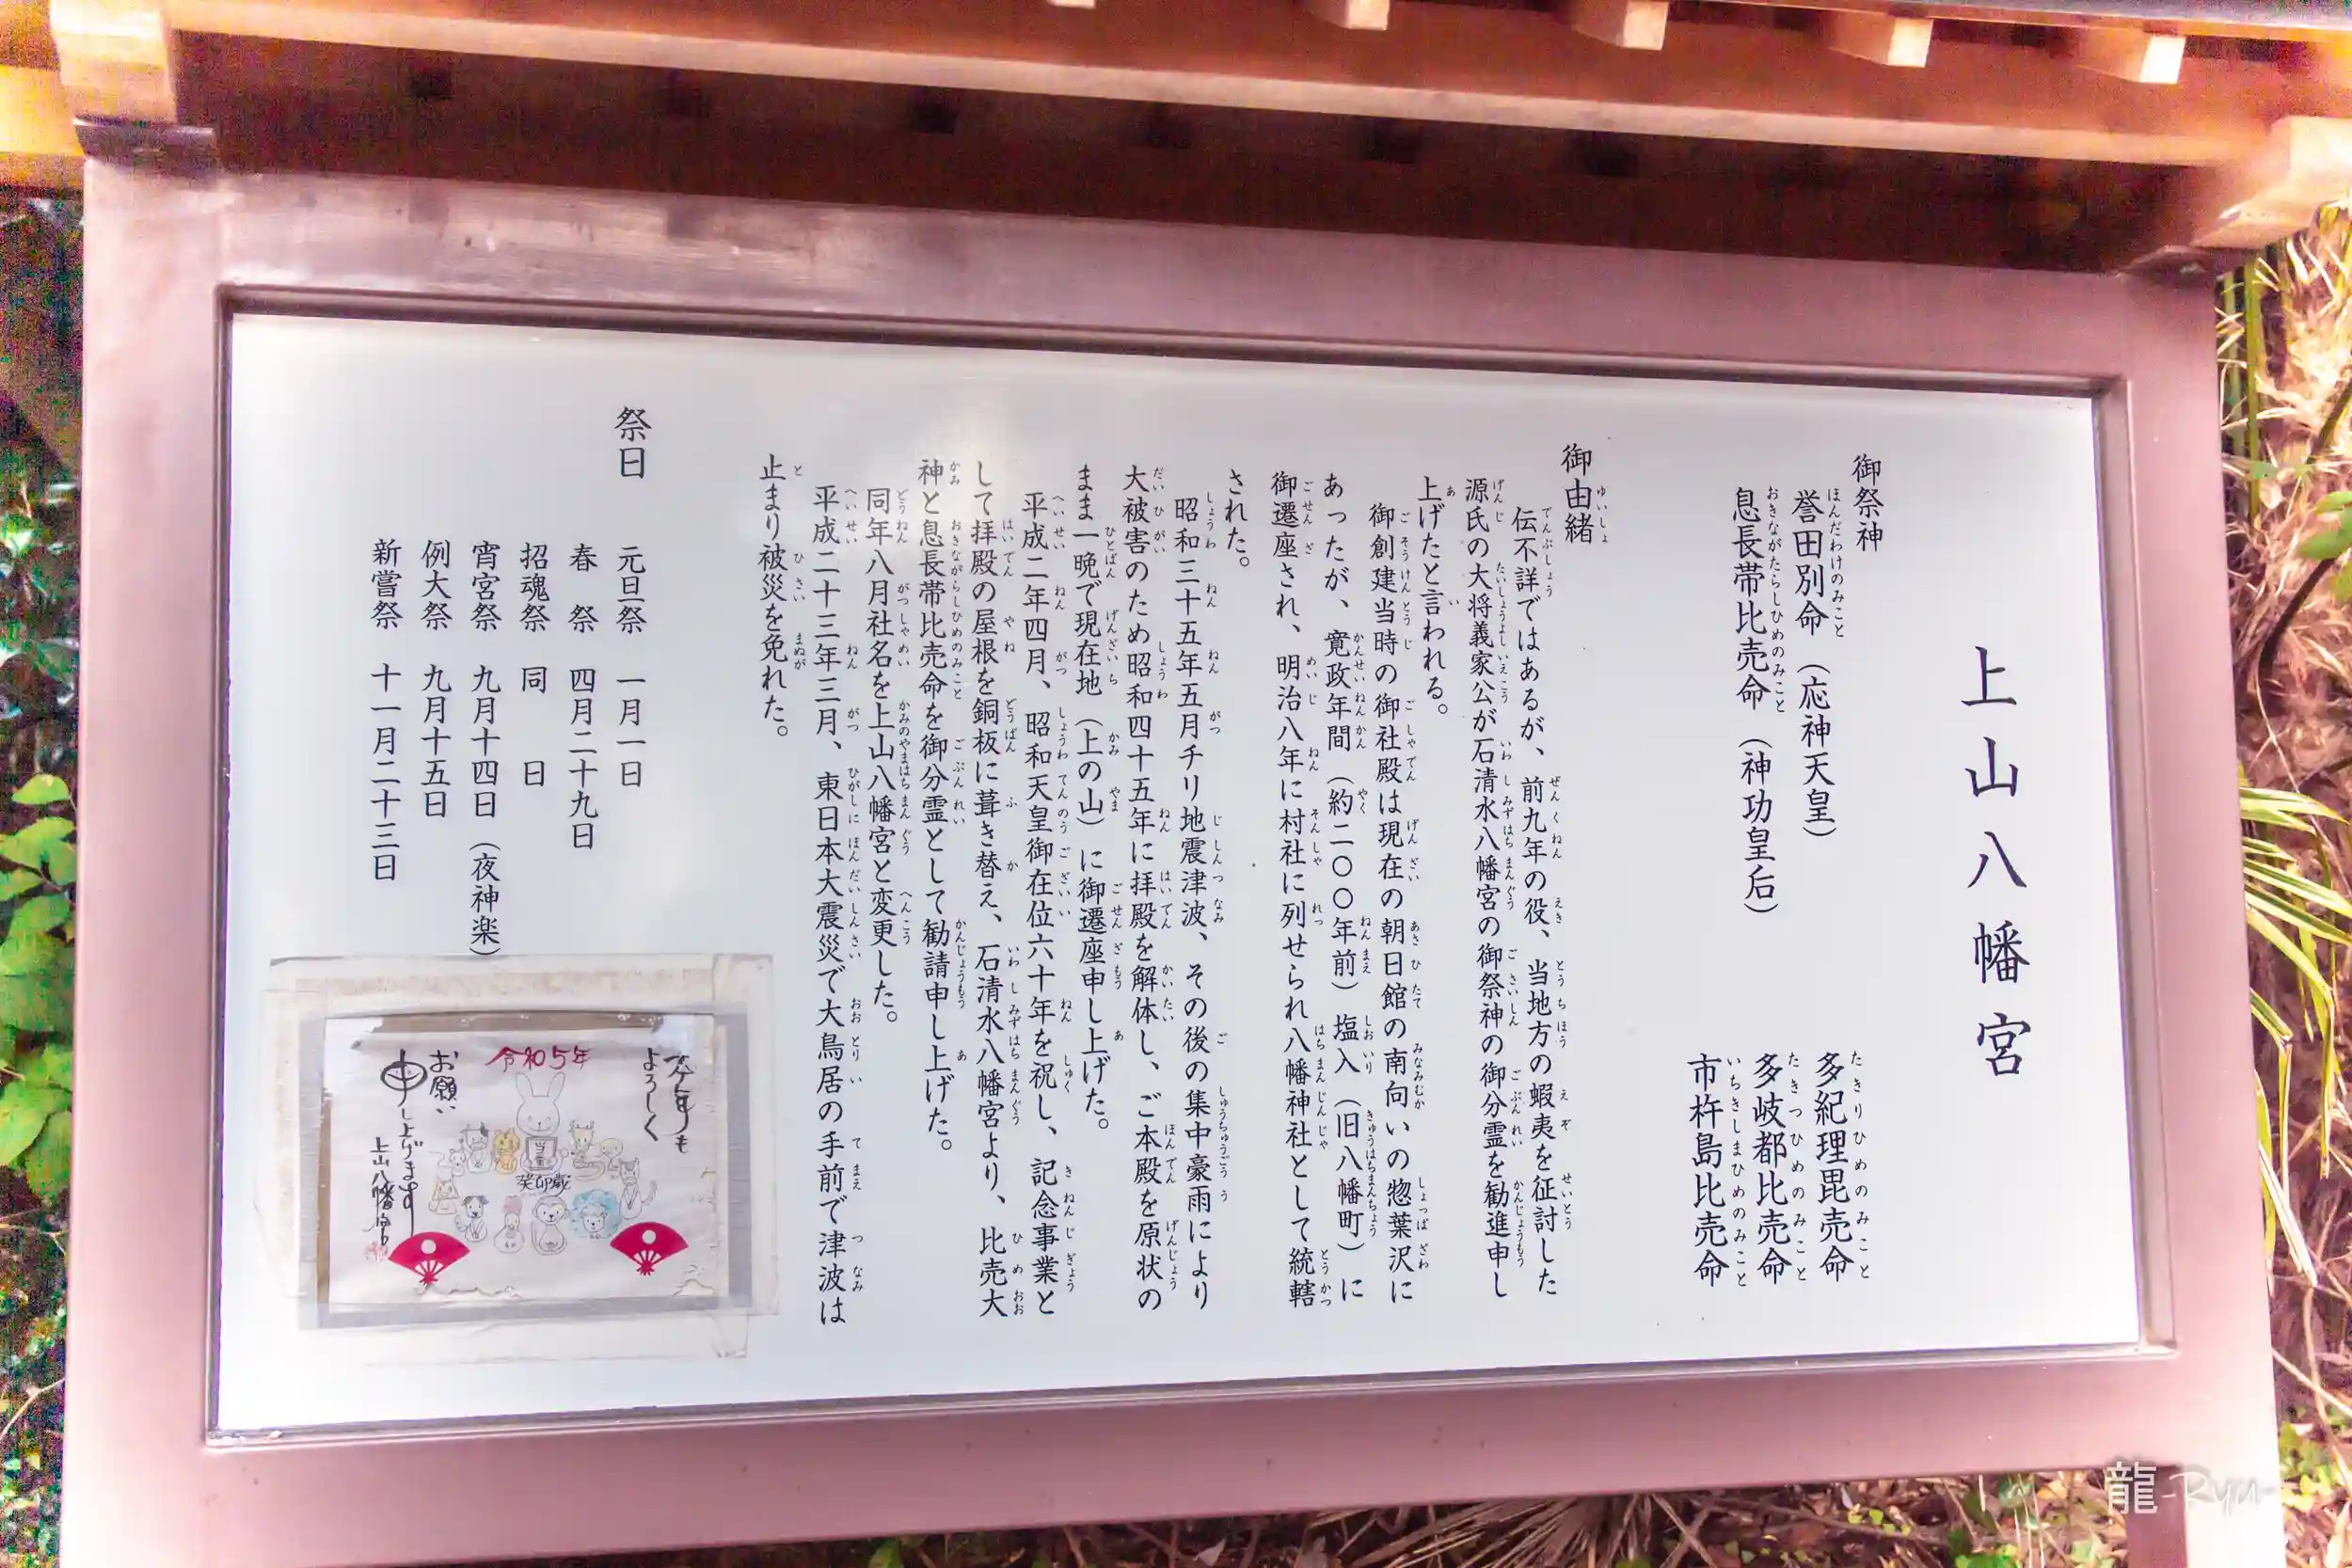 上山八幡宮
御祭神
誉田別命（応神天皇）
息長帯比売命（神功皇后）
多紀理毘売命
多岐都比売命
市杵島比売命
御由緒
伝不詳ではあるが、前九年の役、当地方の蝦夷を征討した
源氏の大将義家公が石清水八幡宮の御祭神の御分霊を勧進申し
上げたと言われる。
御創建当時の御社殿は現在の朝日館の南向いの惣葉沢に
あったが、寛政年間（約二〇〇年前）塩入（旧八幡町）に
御遷座され、明治八年に村社に列せられ八幡神社として統轄
された。
昭和三十五年五月チリ地震津波、その後の集中豪雨により
大被害のため昭和四十五年に拝殿を解体し、ご本殿を原状の
まま一晩で現在地（上の山）に御遷座申し上げた。
平成二年四月、昭和天皇御在位六十年を祝し、記念事業と
して拝殿の屋根を銅板に葺き替え、石清水八幡宮より、比売大
神と息長帯比売命を御分霊として勧請申し上げた。
同年八月社名を上山八幡宮と変更した。
平成二十三年三月、東日本大震災で大鳥居の手前で津波は
止まり被災を免れた。
祭日
元旦祭　一月一日
春　祭　四月二十九日
招魂祭　同　日
宵宮祭　九月十四日（夜神楽）
例大祭　九月十五日
新嘗祭　十一月二十三日
今年も
よろしく
令和5年
お願い
申し上げます
上山八幡宮
癸卯歳
龍-Ryu-